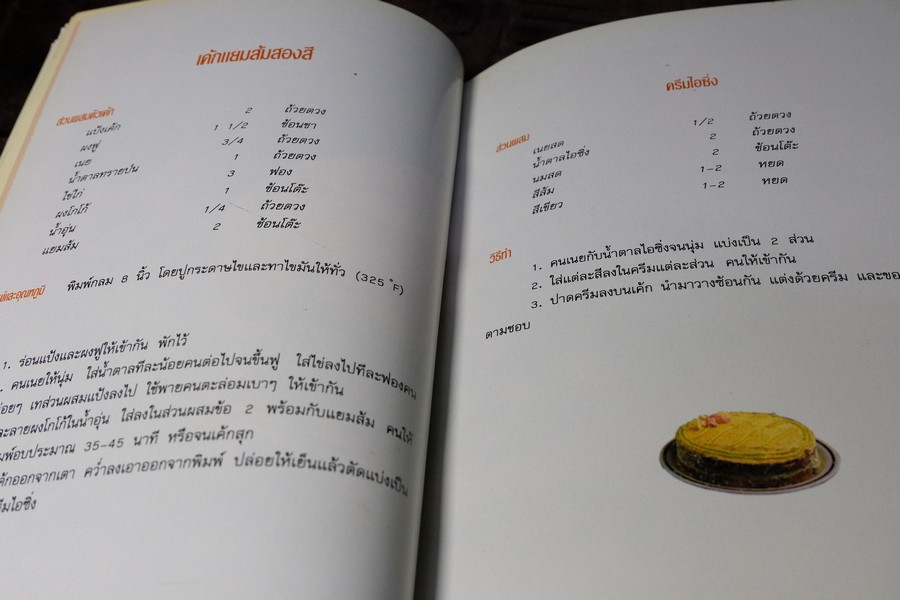 เค้กแยมส้มสองสี
ส่วนผสมตัวเค้ก
แป้งเค้ก 2 ถ้วยตวง
ผงฟู 1 1/2 ช้อนชา
เนย 3/4 ถ้วยตวง
น้ำตาลทรายป่น 1 ถ้วยตวง
ไข่ไก่ 3 ฟอง
ผงโกโก้ 1 ช้อนโต๊ะ
น้ำอุ่น 1/4 ถ้วยตวง
แยมส้ม 2 ช้อนโต๊ะ
และอุณหภูมิ พิมพ์กลม 8 นิ้ว โดยปูกระดาษไขและทาไขมันให้ทั่ว (325 °F)
1. ร่อนแป้งและผงฟูให้เข้ากัน พักไว้
คนเนยให้นุ่ม ใส่น้ำตาลทีละน้อยคนต่อไปจนขึ้นฟู ใส่ไข่ลงไปทีละฟองคน
เทส่วนผสมแป้งลงไป ใช้พายคนตะล่อมเบาๆ ให้เข้ากัน
ละลายผงโกโก้ในน้ำอุ่น ใส่ลงในส่วนผสมข้อ 2 พร้อมกับแยมส้ม คนให้
อบประมาณ 35-45 นาที หรือจนเค้กสุก
ออกจากเตา คว่ำลงเอาออกจากพิมพ์ ปล่อยให้เย็นแล้วตัดแบ่งเป็น
ไอซิ่ง
ครีมไอซิ่ง
ส่วนผสม
เนยสด 1/2 ถ้วยตวง
น้ำตาลไอซิ่ง 2 ถ้วยตวง
นมสด 2 ช้อนโต๊ะ
สีส้ม 1-2 หยด
สีเขียว 1-2 หยด
วิธีทำ
1. คนเนยกับน้ำตาลไอซิ่งจนนุ่ม แบ่งเป็น 2 ส่วน
2. ใส่แต่ละสีลงในครีมแต่ละส่วน คนให้เข้ากัน
3. ปาดครีมลงบนเค้ก นำมาวางซ้อนกัน แต่งด้วยครีม และขอ
ตามชอบ